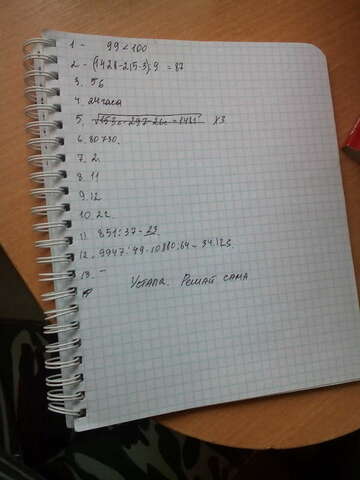 1 - 99 < 100
2 - (1428-215·3):9 = 87
3. 56
4. 24 часа
5. ХЗ
6. 80730.
7. 2
8. 11
9. 12
10. 22
11 851:37 = 23
12. 9947:49·10880:64 = 34.
13. -
Устала. Решай сама